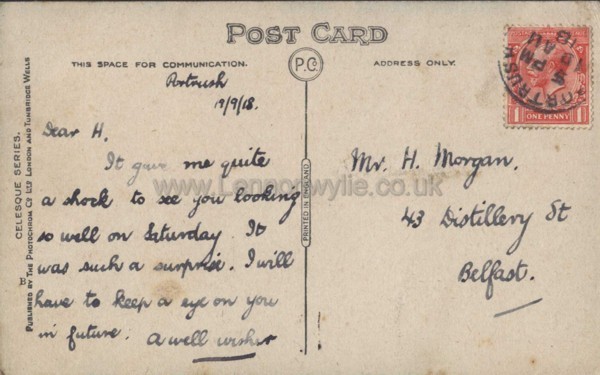 POST CARD
THIS SPACE FOR COMMUNICATION.
P.Co
ADDRESS ONLY.
Portrush
19/9/18.
Dear H.
It gave me quite
a shock to see you looking
so well on Saturday. It
was such a surprise. I will
have to keep a eye on you
in future. A well wisher
Mr. H. Morgan.
43 Distillery St
Belfast.
CELESQUE SERIES.
PUBLISHED BY THE PHOTOCHROM CO LTD LONDON AND TUNBRIDGE WELLS
PRINTED IN ENGLAND
B
1 ONE PENNY 1
PORTRUSH
PM
AU
18
www.Lennonwylie.co.uk